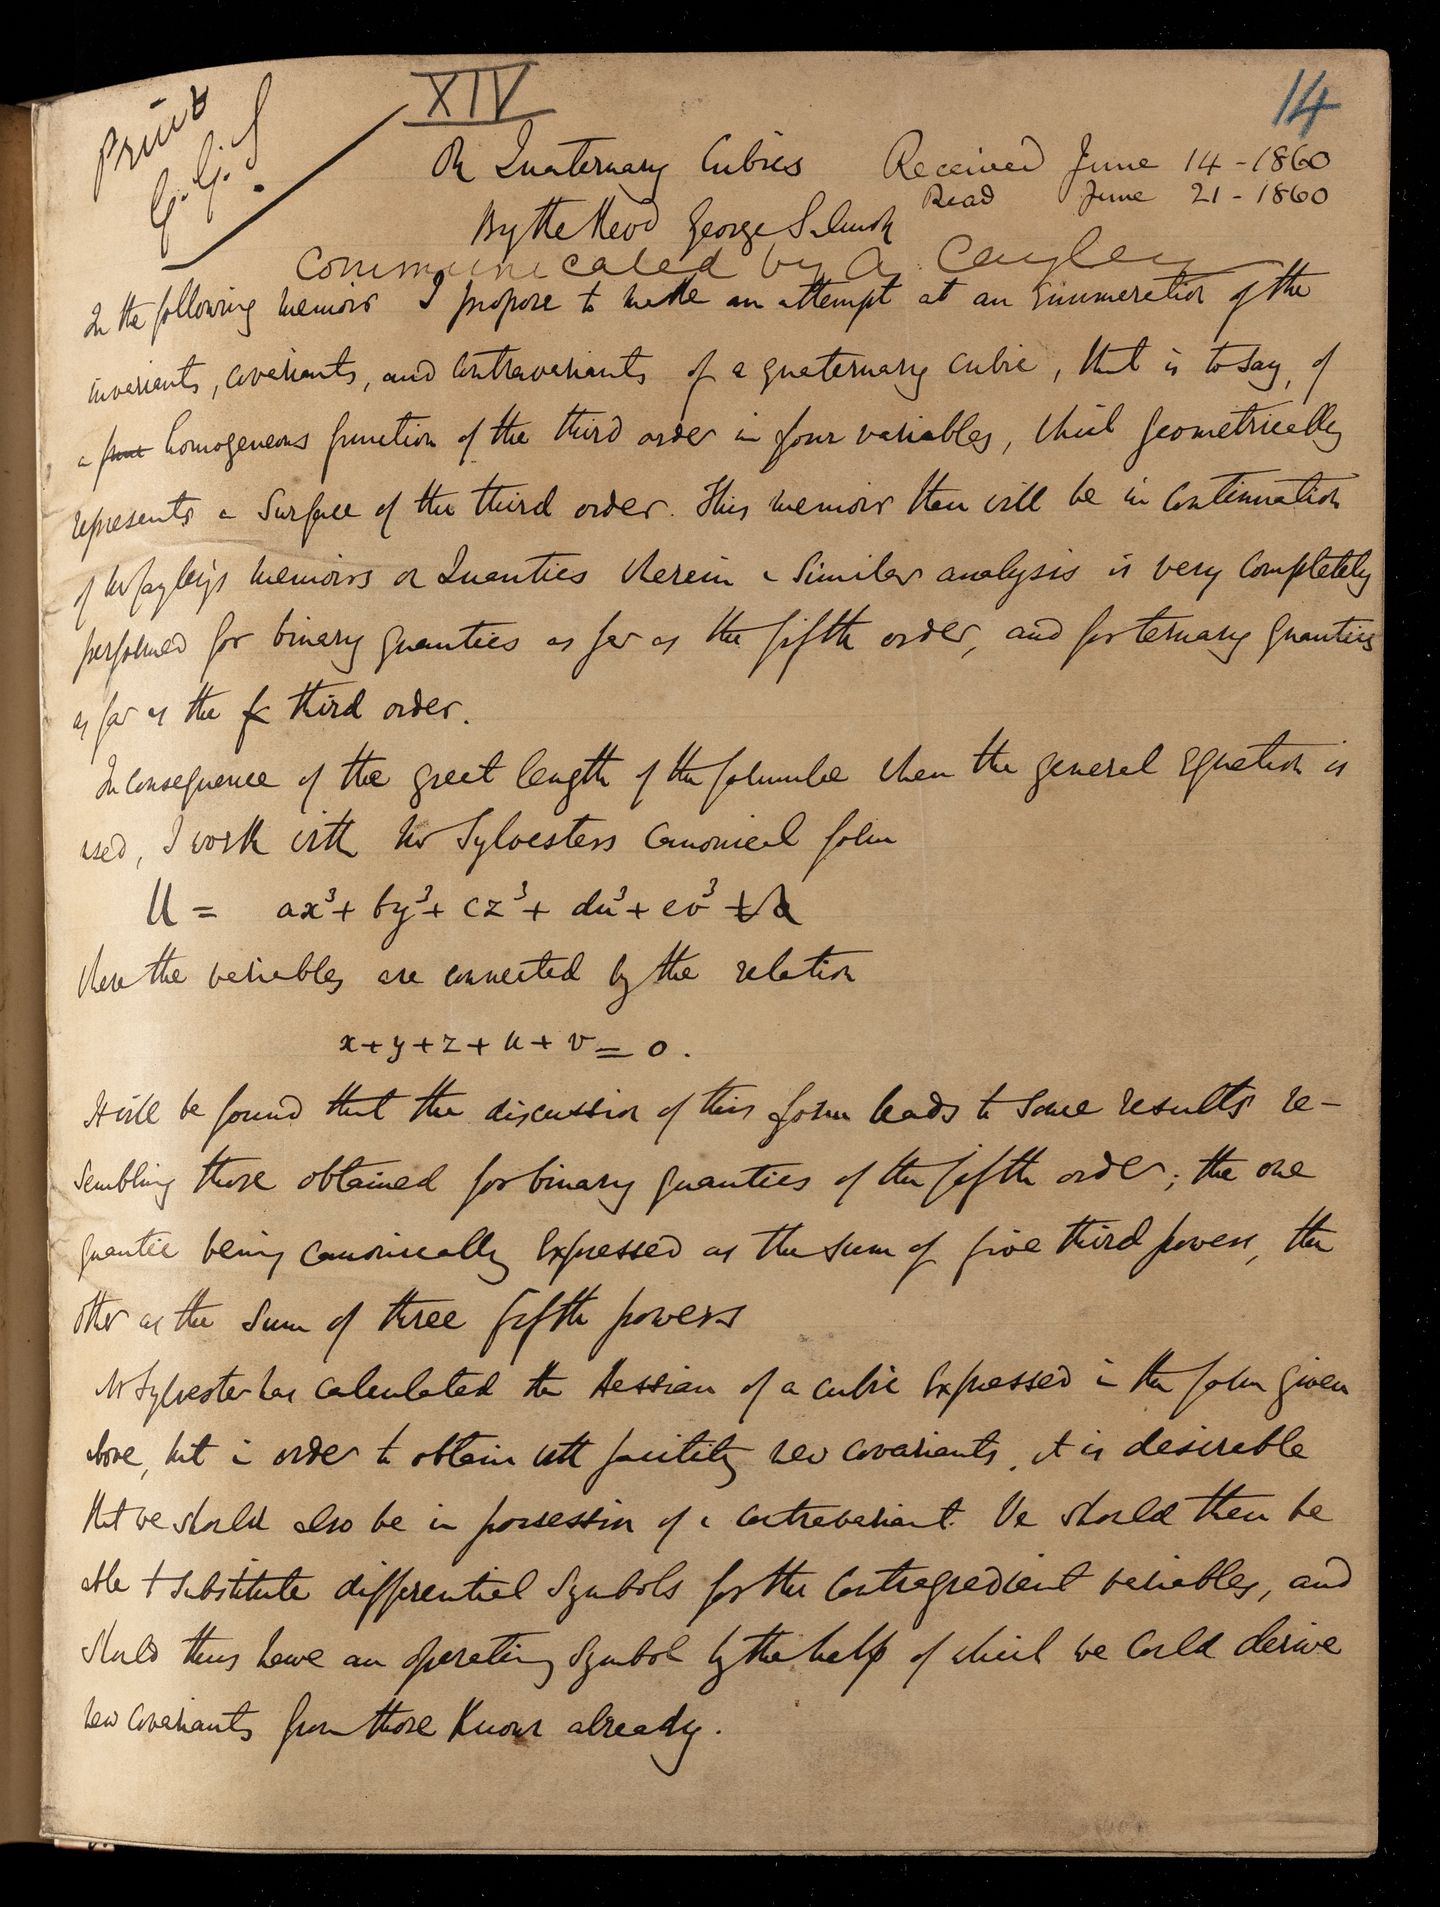 Print
G.G.S
XIV
14
On Quaternary Cubics
Received June 14 - 1860
Read June 21 - 1860
By the Revd George Salmon
Communicated by A. Cayley
In the following memoir I propose to make an attempt at an enumeration of the
invariants, covariants, and contravariants of a quaternary cubic, that is to say, of
a homogeneous function of the third order in four variables, which geometrically
represents a surface of the third order. This memoir then will be in continuation
of Mr Cayley's memoirs on Quantics wherein a similar analysis is very completely
performed for binary quantics as far as the fifth order, and for ternary quantics
as far as the third order.
In consequence of the great length of the formulae when the general equation is
used, I work with Mr Sylvesters Canonical form
U = ax³ + by³ + cz³ + du³ + ev³
where the variables are connected by the relation
x + y + z + u + v = 0.
It will be found that the discussion of this form leads to some results re-
sembling those obtained for binary quantics of the fifth order; the one
quantic being canonically expressed as the sum of five third powers, the
other as the sum of three fifth powers
Mr Sylvester has calculated the Hessian of a cubic expressed in the form given
above, but in order to obtain with facility new covariants, it is desirable
that we should also be in possession of a contravariant. We should then be
able to substitute differential symbols for the contragredient variables, and
should thus have an operating symbol by the help of which we could derive
new covariants from those known already.